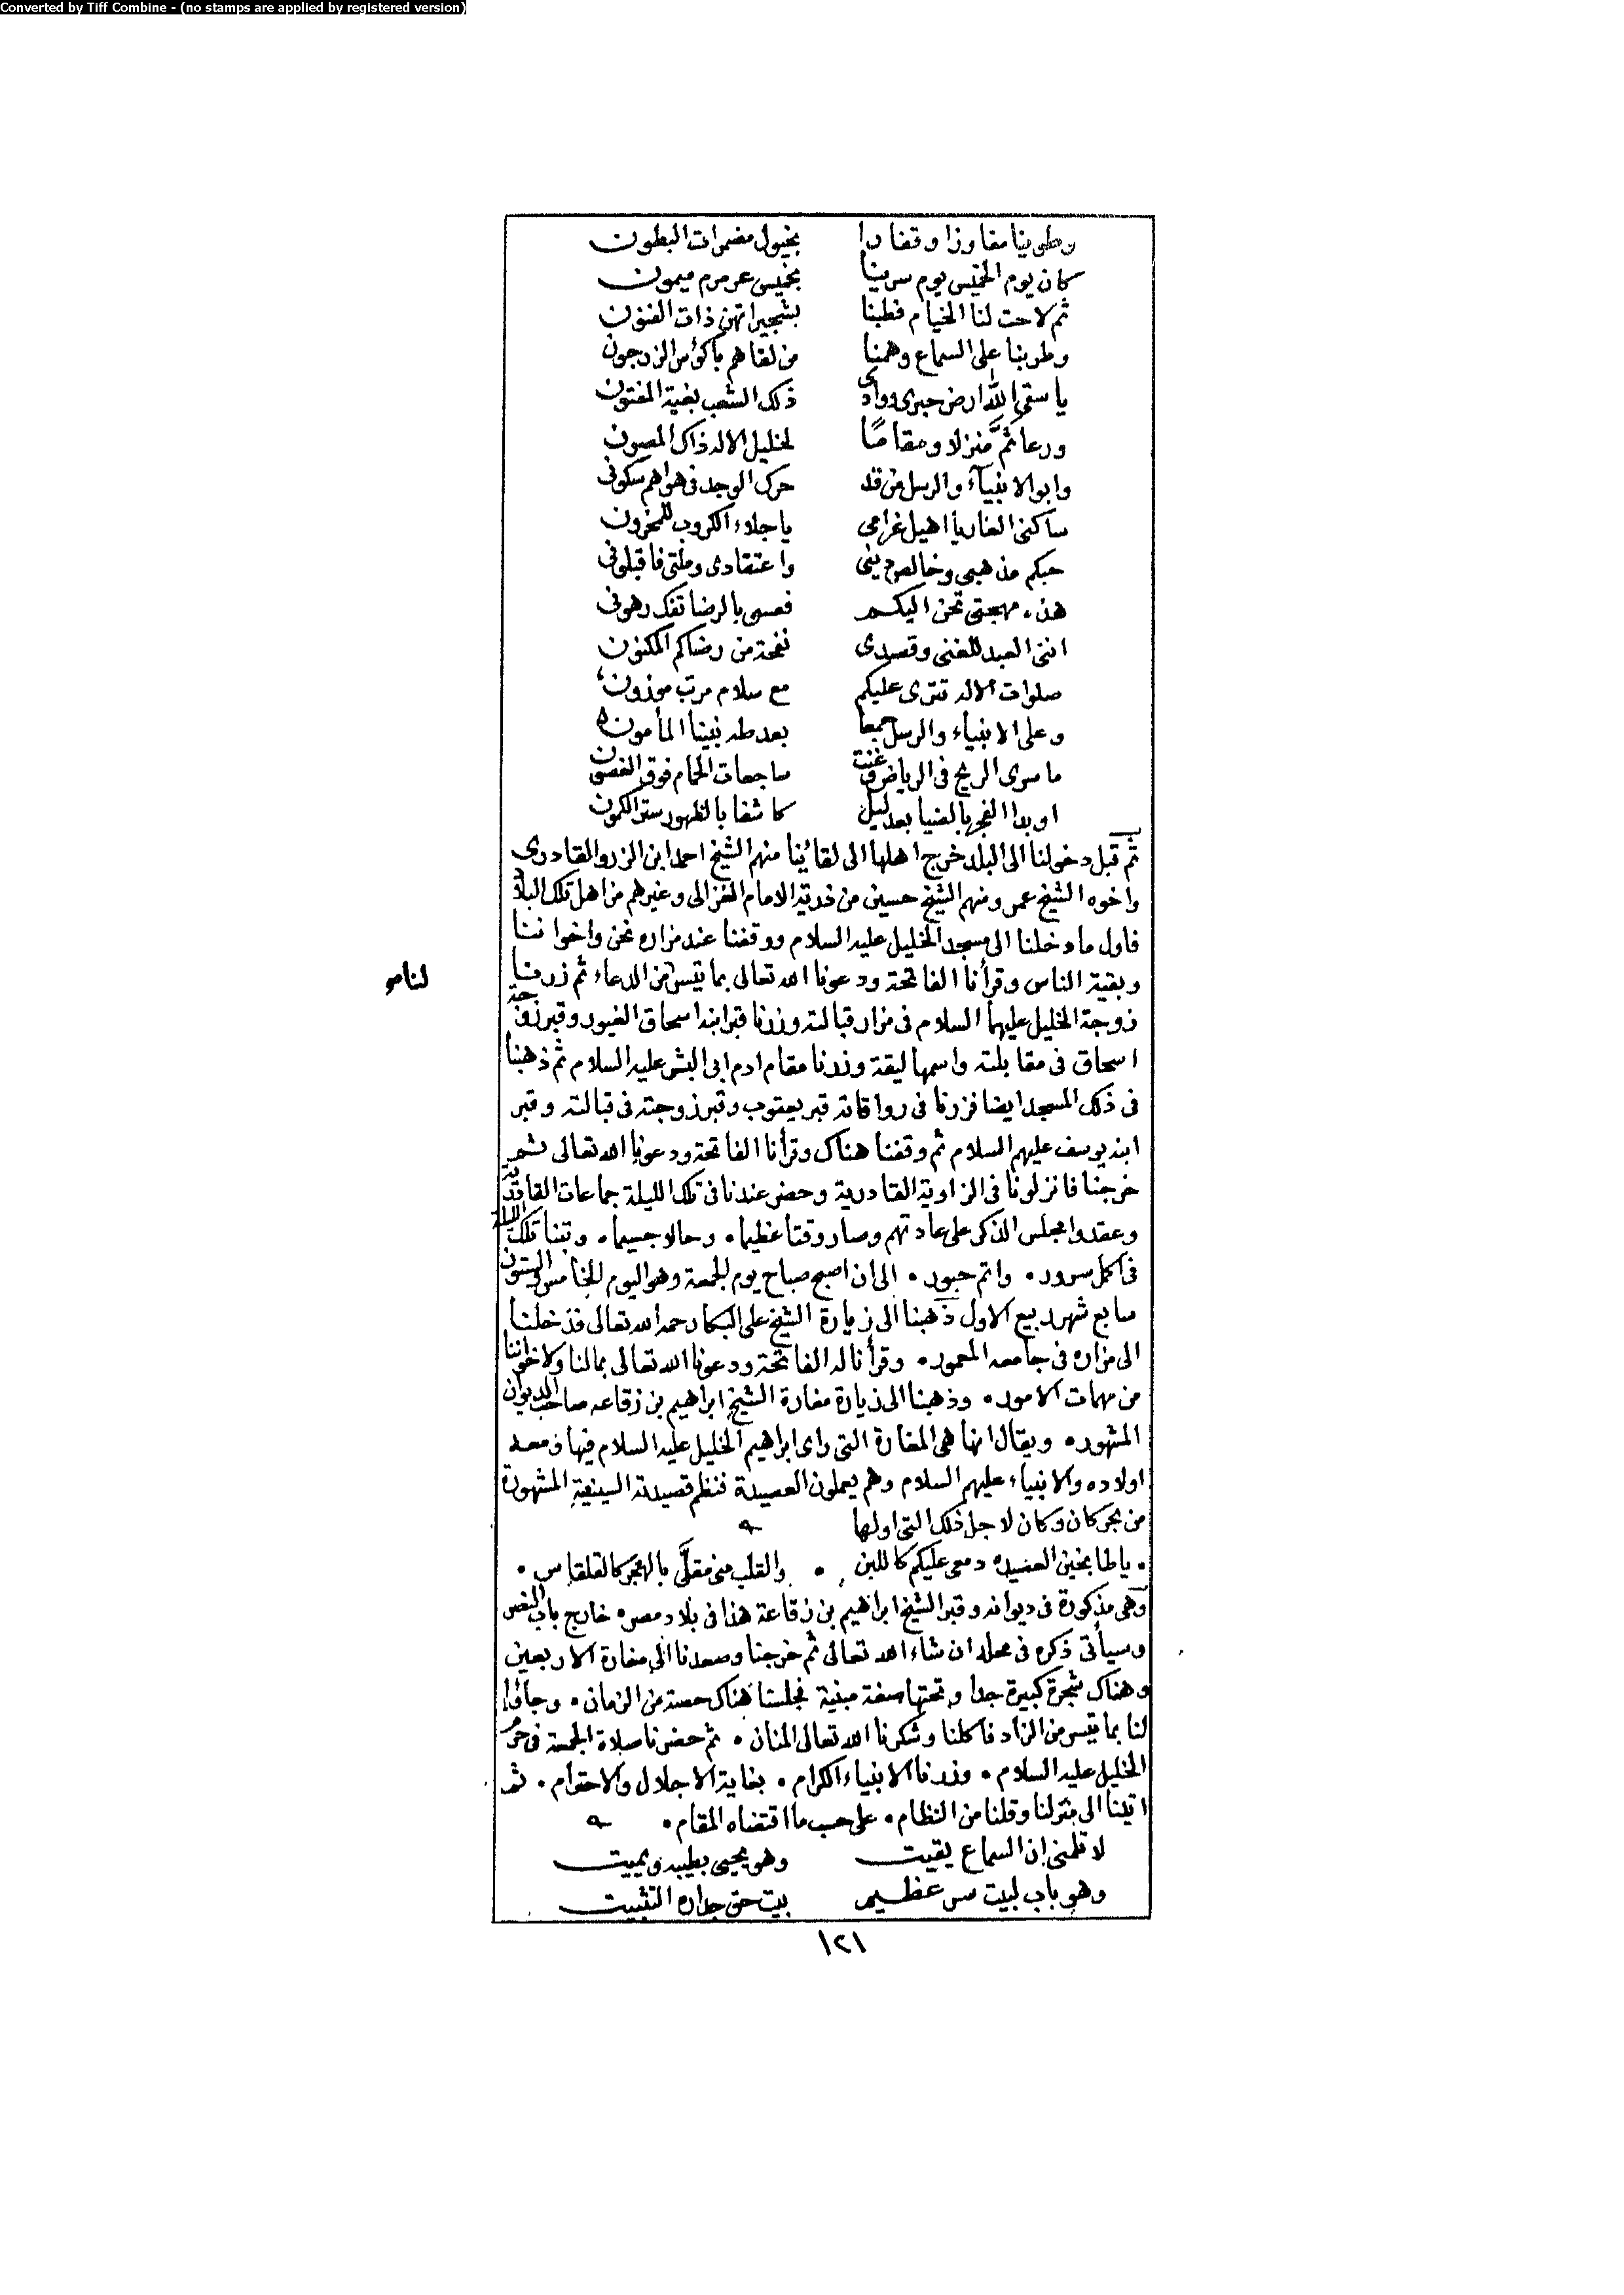 Converted by Tiff Combine - (no stamps are applied by registered version)
وطوينا مفاوزا وقفارا بخيول مضمرات البطون
كان يوم الخميس يوم سرينا بخميس عرمرم ميمون
ثم لاحت لنا الخيام فطبنا بشجيراتهن ذات الفنون
وطربنا على السماع وهمنا من لقاهم باكؤس الزرجون
يا سقى الله ارض حبرى ووادى ذلك الشعب بغية المفتون
ورعا ثمّ منزلا ومقامًا لخليل الاله ذاك المصون
وابو الانبيآء والرسل من قد حرك الوجد فى هواهم سكونى
ساكنى الغار يا اهيل غرامى يا جلاء الكروب للمحزون
حبكم مذهبى وخالص دينى واعتقادى وملتى فاقبلونى
هذه مهجتى تحن اليكم فعسى بالرضا تفك رهونى
اننى العبد للغنى وقصدى نفحة من رضاكم المكنون
صلوات الاله تترى عليكم مع سلام مرتب موزون
وعلى الانبياء والرسل جمعا بعد طه نبينا المأمون
ما سرى الريح فى الرياض وغنت ساجعات الحمام فوق الغصون
او بدا الفجر بالضيا بعد ليل كاشفا بالظهور ستر الكمون
ثم قبل دخولنا الى البلد خرج اهلها الى لقائنا منهم الشيخ احمد ابن الزرو القادرى
واخوه الشيخ عمر ومنهم الشيخ حسين من ذرية الامام الغزالى وغيرهم من اهل تلك البلاد
فاول ما دخلنا الى مسجد الخليل عليه السلام ووقفنا عند مزاره نحن واخواننا
وبقية الناس وقرأنا الفاتحة ودعونا الله تعالى بما تيسر من الدعاء ثم زرنا
زوجة الخليل عليهما السلام فى مزار قبالته وزرنا قبر ابنه اسحاق الغيور وقبر زوجة
اسحاق فى مقابلته واسمها ليقة وزرنا مقام ادم ابى البشر عليه السلام ثم ذهبنا
فى ذلك المسجد ايضا فزرنا فى رواقاته قبر يعقوب وقبر زوجته فى قبالته وقبر
ابنه يوسف عليهم السلام ثم وقفنا هناك وقرأنا الفاتحة ودعونا الله تعالى ثم
خرجنا فانزلونا فى الزاوية القادرية وحضر عندنا فى تلك الليلة جماعات القادرية
وعقدوا مجلس الذكر على عادتهم وصار وقتا عظيما • وحالا جسيما • وبتنا تلك الليلة
فى اكمل سرور • واتم حبور • الى ان اصبح صباح يوم الجمعة وهو اليوم الخامس والستون
سابع شهر ربيع الاول ذهبنا الى زيارة الشيخ على البكا رحمه الله تعالى فدخلنا
الى مزاره فى جامعه المعمور • وقرأنا له الفاتحة ودعونا الله تعالى بما لنا ولاخواننا
من مهمات الامور • وذهبنا الى زيارة مغارة الشيخ ابراهيم بن زقاعه صاحب الديوان
المشهور • ويقال انها هى المغارة التى راى ابراهيم الخليل عليه السلام فيها ومعه
اولاده والانبياء عليهم السلام وهم يعملون العصيدة فنظم قصيدته السينية المشهورة
من بحر كان وكان لاجل ذلك التى اولها
• يا طابخين العصيده دمعى عليكم كاللبن • والقلب منى مقلّى بالهجر كالقلقاس •
وهى مذكورة فى ديوانه وقبر الشيخ ابراهيم بن زقاعة هذا فى بلاد مصر خارج باب النصر
وسيأتى ذكره فى محله ان شاء الله تعالى ثم خرجنا وصعدنا الى مغارة الاربعين
وهناك شجرة كبيرة جدا وتحتها صفة مبنية فجلسنا هناك حصة من الزمان • وجاؤا
لنا بما تيسر من الزاد فاكلنا وشكرنا الله تعالى المنان • ثم حضرنا صلاة الجمعة فى حرم
الخليل عليه السلام • وزرنا الانبياء الكرام • بغاية الاجلال والاحترام • ثم
اتينا الى منزلنا وقلنا من النظام • على حسب ما اقتضاه المقام •
لا تلمنى ان السماع يقيت وهو يحيى بطيبه ويميت
وهو باب لبيت سر عظيم بيت حق جداره التثبيت
١٢١